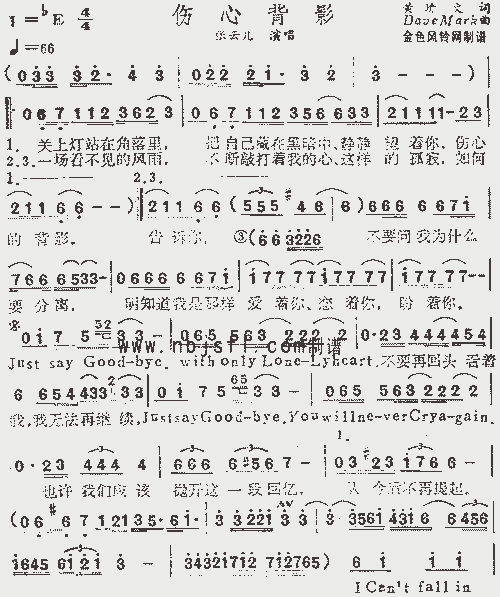 1=♭E 4/4 伤心背影 词
♩=66 张云儿 演唱 DaveMark曲
金色风铃网制谱
(033 32· 4 3 | 022 21· 3 2 | 3 - - - )
067112 3623 | 067112356633 | 21111-23
1. 关上灯站在角落里, 把自己藏在黑暗中、静静 望着你、伤心
2.3.一场看不见的风雨, 不断敲打着我的心、这样 的孤寂, 如何
1. 2.3.
2116 6 - - ) 2116 6 ( 555 #46 | 6 ) 666 6671
的背影. 告诉你, ③(663226 不要问我为什么
7666533- - | 0666 6671 | 1777771 7777 | 177777--
要分离, 明知道我是那样 爱着你、恋着你, 盼着你.
017 5 52 33 - | 065 563 222 2 | 0·23 444454
www.nbjsfl.com制谱
Just say Good-bye. with only Lone-Lyheart.不要再回头 看着
6 65443323 33 | 017 5 65 33 - | 065 563222 2
我,我无法再继续,JustsayGood-bye,YouwillNe-verCrya-gain.
1.
0·23 444 4 | 666 6#567 - | 03#23 1766 -
也许 我们应该 抛开这一段回忆, 从今后不再提起.
(06 #6 7 12135·61· | 3 32213 3 | 3·3561 4316 6456
1645 61213 - | 34321712712765) 61 11
I Can't fall in